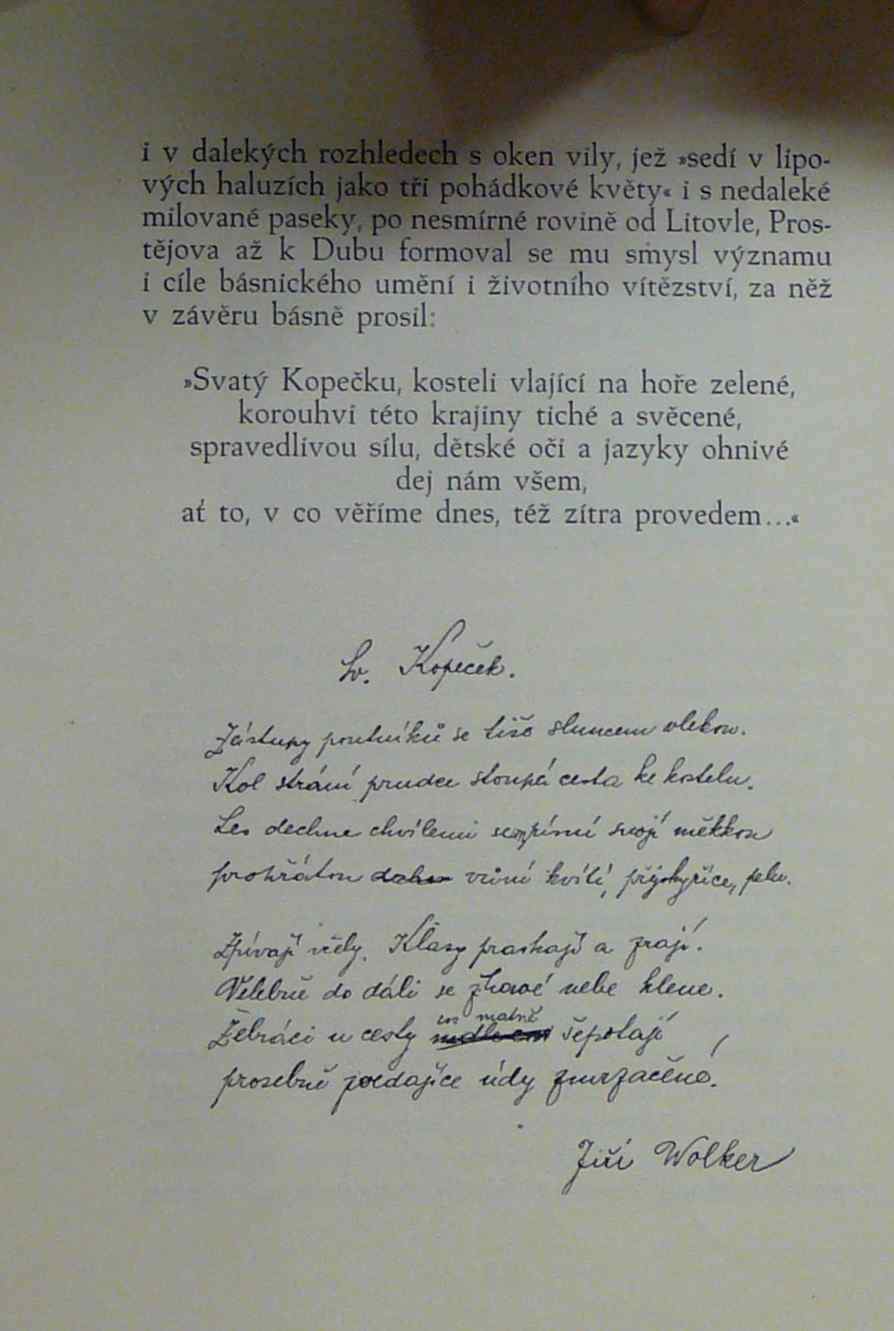 i v dalekých rozhledech s oken vily, jež »sedí v lipo-
vých haluzích jako tři pohádkové květy« i s nedaleké
milované paseky, po nesmírné rovině od Litovle, Pros-
tějova až k Dubu formoval se mu smysl významu
i cíle básnického umění i životního vítězství, za něž
v závěru básně prosil:
»Svatý Kopečku, kosteli vlající na hoře zelené,
korouhvi této krajiny tiché a svěcené,
spravedlivou sílu, dětské oči a jazyky ohnivé
dej nám všem,
ať to, v co věříme dnes, též zítra provedem...«
Sv. Kopeček.
Zástupy poutníků se tiše sluncem vlekou.
Kol strání prudce stoupá cesta ke kostelu.
Les dechne chvílemi svojí měkkou
prohřátou vůní kvítí, pryskyřice, pelu.
Zpívají včely. Klasy praskají a zrají.
Velebně do dáli se žhavé nebe klene.
Žebráci u cesty cos matně šepotají
prosebně zvedajíce údy zmrzačené.
Jiří Wolker